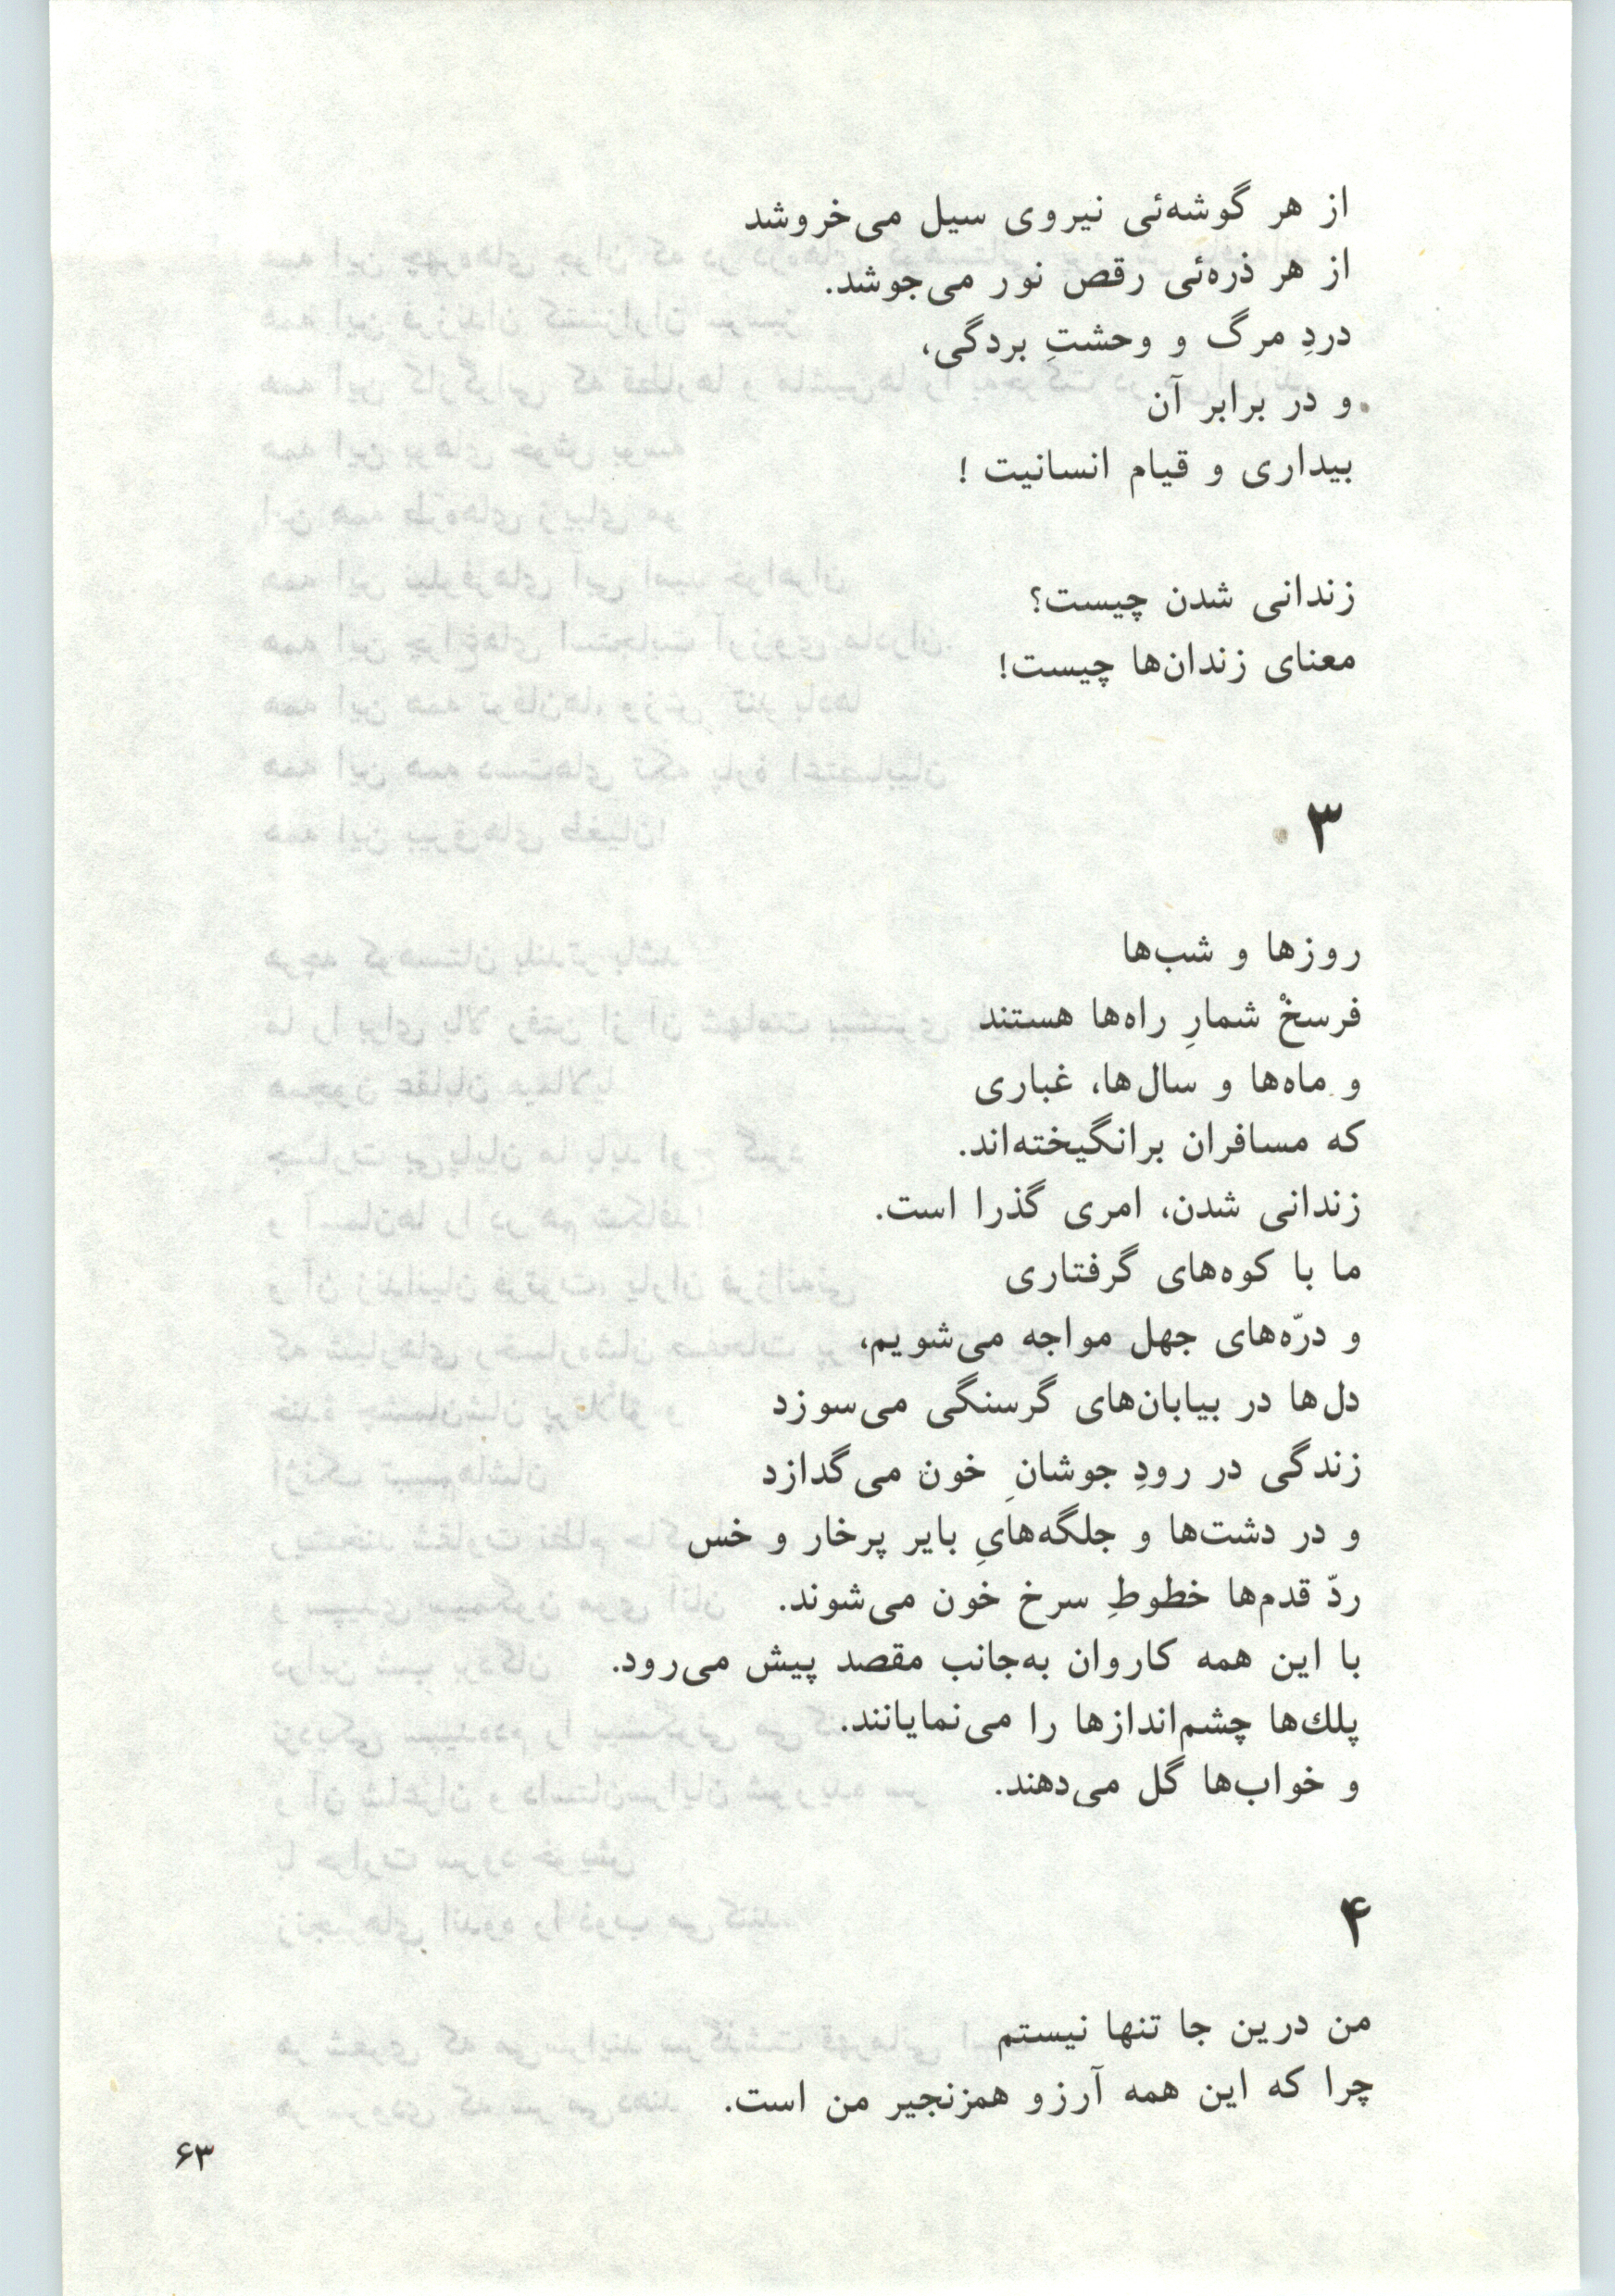 از هر گوشه‌ئی نیروی سیل می‌خروشد
از هر ذره‌ئی رقص نور می‌جوشد.
دردِ مرگ و وحشتِ بردگی،
و در برابر آن
بیداری و قیام انسانیت !
زندانی شدن چیست؟
معنای زندان‌ها چیست!
۳
روزها و شب‌ها
فرسخْ شمارِ راه‌ها هستند
و ماه‌ها و سال‌ها، غباری
که مسافران برانگیخته‌اند.
زندانی شدن، امری گذرا است.
ما با کوه‌های گرفتاری
و درّه‌های جهل مواجه می‌شویم،
دل‌ها در بیابان‌های گرسنگی می‌سوزد
زندگی در رودِ جوشانِ خون می‌گدازد
و در دشت‌ها و جلگه‌هایِ بایر پرخار و خس
ردّ قدم‌ها خطوطِ سرخ خون می‌شوند.
با این همه کاروان به‌جانب مقصد پیش می‌رود.
پلك‌ها چشم‌اندازها را می‌نمایانند.
و خواب‌ها گل می‌دهند.
۴
من درین جا تنها نیستم
چرا که این همه آرزو همزنجیر من است.
۶۳